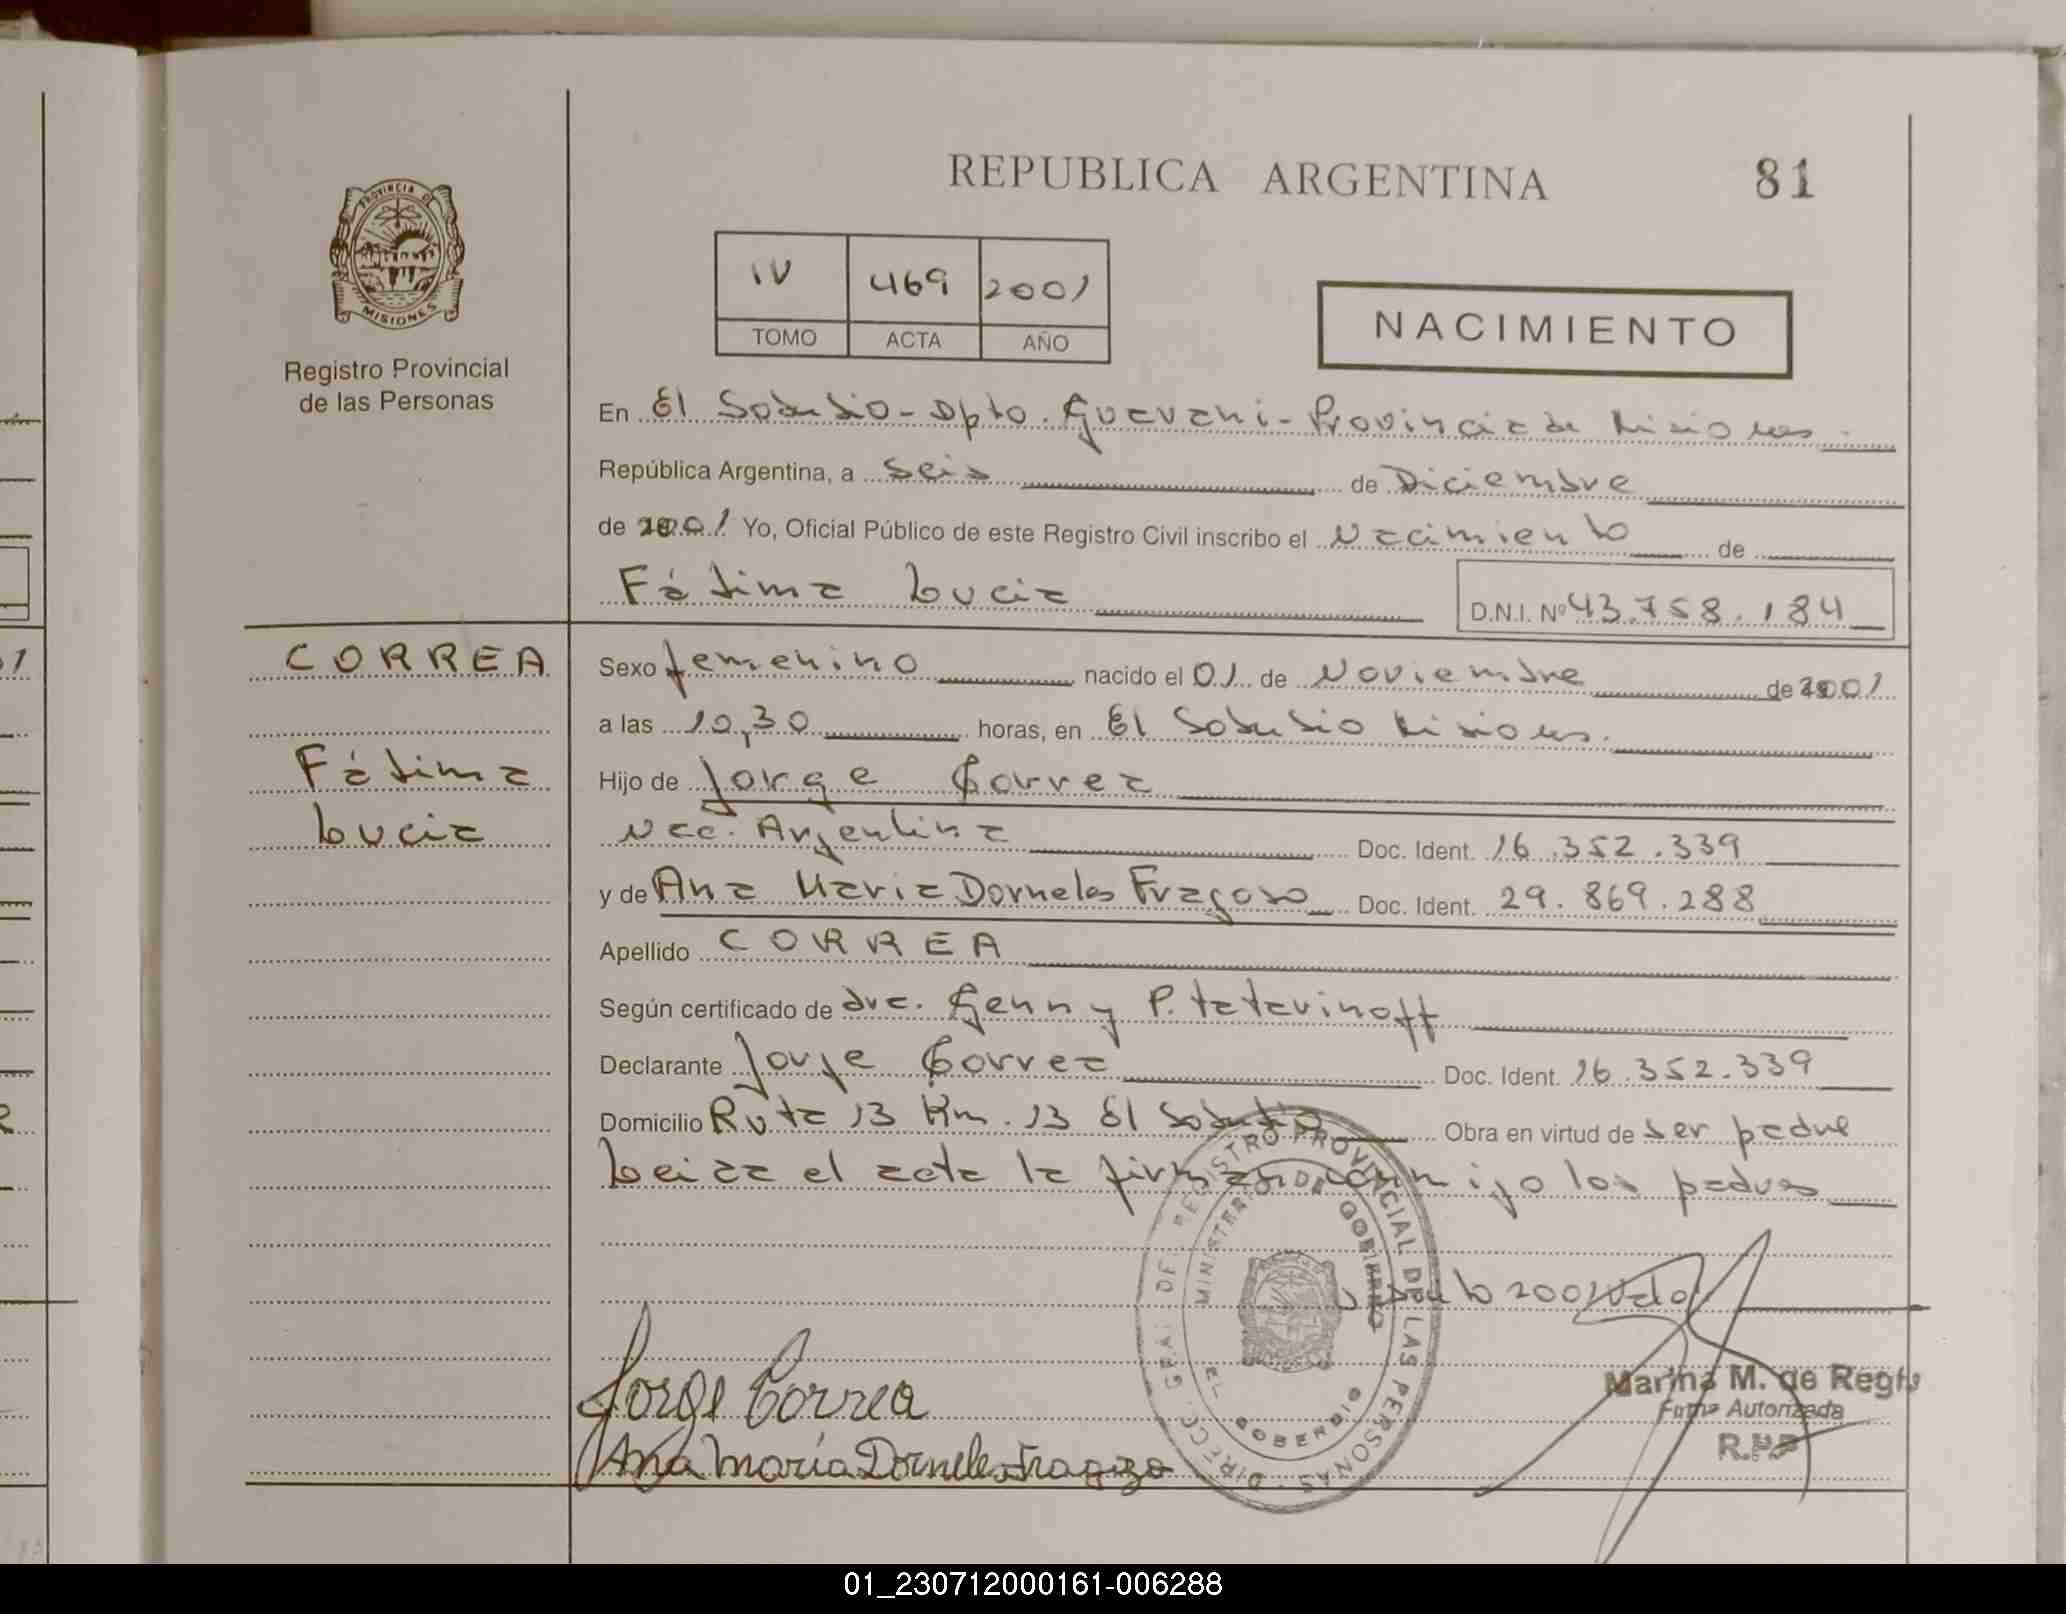 REPUBLICA ARGENTINA 81
PROVINCIA DE MISIONES
Registro Provincial
de las Personas
IV 469 2001
TOMO ACTA AÑO
NACIMIENTO
En El Soberbio - Dpto. Guarani - Provincia de Misiones
República Argentina, a seis de Diciembre
de 2001 Yo, Oficial Público de este Registro Civil inscribo el Nacimiento de
Fátima Lucia D.N.I. Nº 43.758.184
CORREA
Fátima
Lucia
Sexo femenino nacido el 01 de Noviembre de 2001
a las 10,30 horas, en El Soberbio Misiones.
Hijo de Jorge Correa
Nac. Argentina Doc. Ident. 16.352.339
y de Ana Maria Dorneles Fragoso Doc. Ident. 29.869.288
Apellido CORREA
Según certificado de dra. Genny P. Tatarinoff
Declarante Jorge Correa Doc. Ident. 16.352.339
Domicilio Ruta 13 Km. 13 El Soberbio Obra en virtud de ser padre
Leida el acta la firman conmigo los padres
2001
DIRECC. GRAL. DE REGISTRO PROVINCIAL DE LAS PERSONAS
MINISTERIO DE GOBIERNO
EL SOBERBIO
Jorge Correa
Ana María Dorneles Fragozo
Marina M. de Regis
Firma Autorizada
R.P.P
01_230712000161-006288